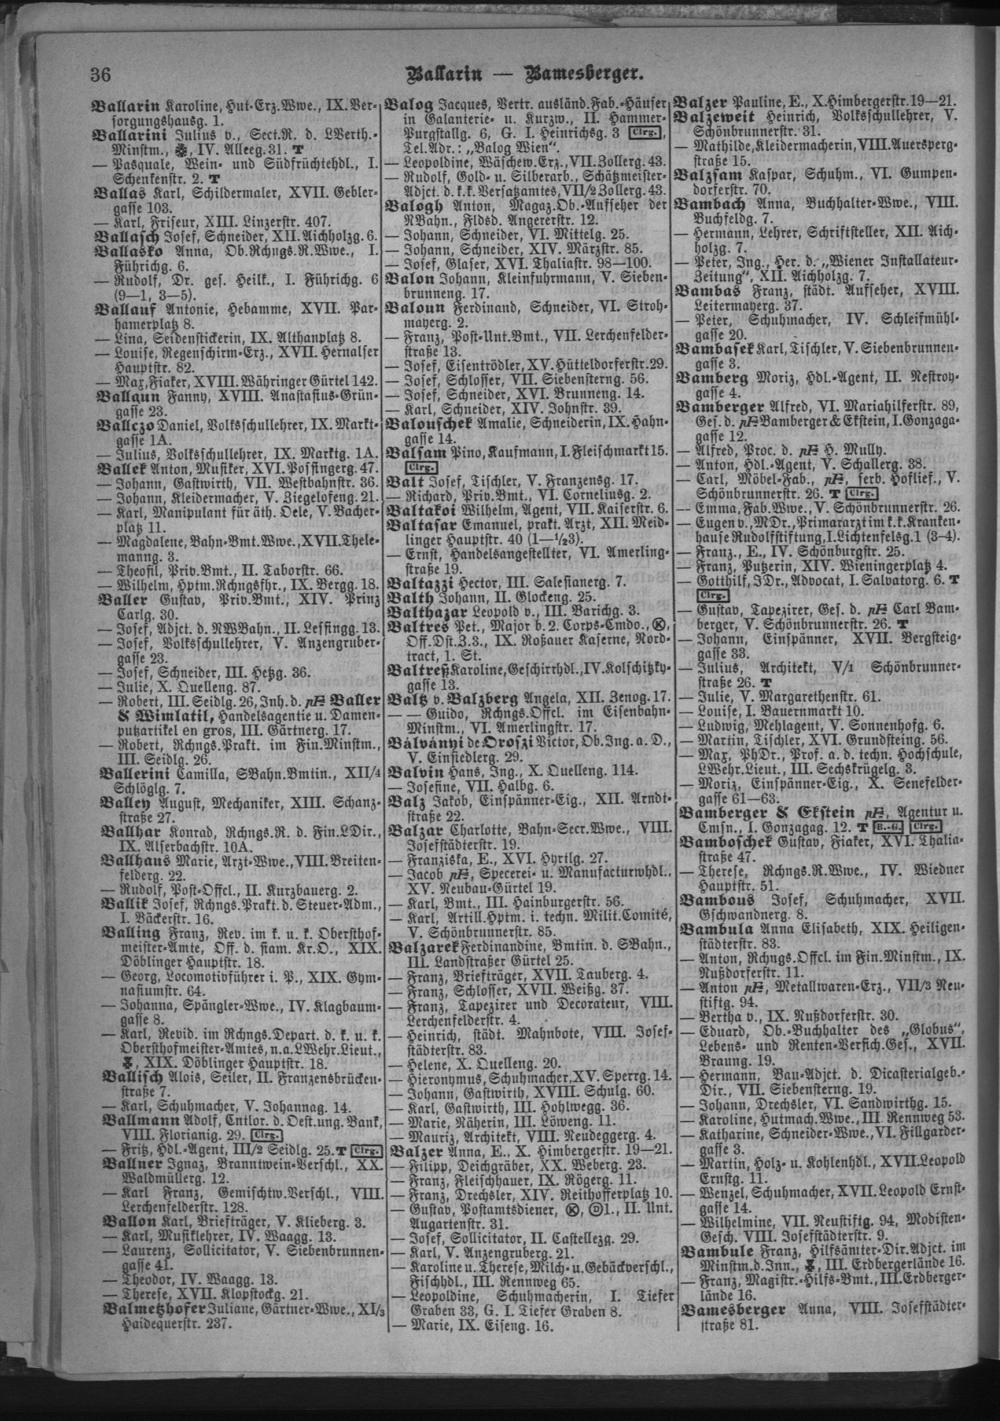 36
Ballarin — Bamesberger.
Ballarin Karoline, Hut-Erz.Wwe., IX. Ver-
sorgungshausg. 1.
Ballarini Julius v., Sect.R. d. LVerth.-
Minstm., IV. Alleeg. 31. T
— Pasquale, Wein- und Südfrüchtehdl., I.
Schenkenstr. 2. T
Ballas Karl, Schildermaler, XVII. Gebler-
gasse 103.
— Karl, Friseur, XIII. Linzerstr. 407.
Ballasch Josef, Schneider, XII. Aichholzg. 6.
Ballasko Anna, Ob.Rchngs.R.Wwe., I.
Führichg. 6.
— Rudolf, Dr. ges. Heilk., I. Führichg. 6
(9—1, 3—5).
Ballauf Antonie, Hebamme, XVII. Par-
hamerplatz 8.
— Lina, Seidenstickerin, IX. Althanplatz 8.
— Louise, Regenschirm-Erz., XVII. Hernalser
Hauptstr. 82.
— Max, Fiaker, XVIII. Währinger Gürtel 142.
Ballaun Fanny, XVIII. Anastasius-Grün-
gasse 23.
Ballczo Daniel, Volksschullehrer, IX. Markt-
gasse 1A.
— Julius, Volksschullehrer, IX. Marktg. 1A.
Ballek Anton, Musiker, XVI. Possingerg. 47.
— Johann, Gastwirth, VII. Westbahnstr. 36.
— Johann, Kleidermacher, V. Ziegelofeng. 21.
— Karl, Manipulant für äth. Oele, V. Bacher-
platz 11.
— Magdalene, Bahn-Bmt.Wwe., XVII. Thele-
manng. 3.
— Theofil, Priv.Bmt., II. Taborstr. 66.
— Wilhelm, Hptm.Rchngsfhr., IX. Bergg. 18.
Baller Gustav, Priv.Bmt., XIV. Prinz
Carlg. 30.
— Josef, Adjct. d. NWBahn., II. Lessingg. 13.
— Josef, Volksschullehrer, V. Anzengruber-
gasse 23.
— Josef, Schneider, III. Hetzg. 36.
— Julie, X. Quelleng. 87.
— Robert, III. Seidlg. 26, Inh. d. Baller
& Wimlatil, Handelsagentie u. Damen-
putzartikel en gros, III. Gärtnerg. 17.
— Robert, Rchngs.Prakt. im Fin.Minstm.,
III. Seidlg. 26.
Ballerini Camilla, SBahn.Bmtin., XII/4
Schlöglg. 7.
Balley August, Mechaniker, XIII. Schanz-
straße 27.
Ballhar Konrad, Rchngs.R. d. Fin.LDir.,
IX. Alserbachstr. 10A.
Ballhaus Marie, Arzt-Wwe., VIII. Breiten-
felderg. 22.
— Rudolf, Post-Offcl., II. Kurzbauerg. 2.
Ballik Josef, Rchngs.Prakt. d. Steuer-Adm.,
I. Bäckerstr. 16.
Balling Franz, Rev. im k. u. k. Obersthof-
meister-Amte, Off. d. siam. Kr.O., XIX.
Döblinger Hauptstr. 18.
— Georg, Locomotivführer i. P., XIX. Gym-
nasiumstr. 64.
— Johanna, Spängler-Wwe., IV. Klagbaum-
gasse 8.
— Karl, Revid. im Rchngs.Depart. d. k. u. k.
Obersthofmeister-Amtes, n.a.LWehr.Lieut.,
XIX. Döblinger Hauptstr. 18.
Ballisch Alois, Seiler, II. Franzensbrücken-
straße 7.
— Karl, Schuhmacher, V. Johannag. 14.
Ballmann Adolf, Cntlor. d. Oest.ung. Bank,
VIII. Florianig. 29. Clrg.
— Fritz, Hdl.-Agent, III/2 Seidlg. 25. T Clrg.
Ballner Ignaz, Branntwein-Verschl., XX.
Waldmüllerg. 12.
— Karl Franz, Gemischtw.Verschl., VIII.
Lerchenfelderstr. 128.
Ballon Karl, Briefträger, V. Klieberg. 3.
— Karl, Musiklehrer, IV. Waagg. 13.
— Laurenz, Sollicitator, V. Siebenbrunnen-
gasse 41.
— Theodor, IV. Waagg. 13.
— Therese, XVII. Klopstockg. 21.
Balmetzhofer Juliane, Gärtner-Wwe., XI/3
Haidequerstr. 237.
Balog Jacques, Vertr. ausländ. Fab.-Häuser
in Galanterie- u. Kurzw., II. Hammer-
Purgstallg. 6, G. I. Heinrichsg. 3 Clrg.,
Tel.Adr.: „Balog Wien".
— Leopoldine, Wäschew.Erz., VII. Zollerg. 43.
— Rudolf, Gold- u. Silberarb., Schätzmeister-
Adjct. d. k.k. Versatzamtes, VII/2 Zollerg. 43.
Balogh Anton, Magaz.Ob.-Aufseher der
NBahn., Fldsd. Angererstr. 12.
— Johann, Schneider, VI. Mittelg. 25.
— Johann, Schneider, XIV. Märzstr. 85.
— Josef, Glaser, XVI. Thaliastr. 98—100.
Balon Johann, Kleinfuhrmann, V. Sieben-
brunneng. 17.
Baloun Ferdinand, Schneider, VI. Stroh-
mayerg. 2.
— Franz, Post-Unt.Bmt., VII. Lerchenfelder-
straße 13.
— Josef, Eisentrödler, XV. Hütteldorferstr. 29.
— Josef, Schlosser, VII. Siebensterng. 56.
— Josef, Schneider, XVI. Brunneng. 14.
— Karl, Schneider, XIV. Johnstr. 39.
Balouschek Amalie, Schneiderin, IX. Hahn-
gasse 14.
Balsam Pino, Kaufmann, I. Fleischmarkt 15.
Clrg.
Balt Josef, Tischler, V. Franzensg. 17.
— Richard, Priv.Bmt., VI. Corneliusg. 2.
Baltakoi Wilhelm, Agent, VII. Kaiserstr. 6.
Baltasar Emanuel, prakt. Arzt, XII. Meid-
linger Hauptstr. 40 (1—½3).
— Ernst, Handelsangestellter, VI. Amerling-
straße 19.
Baltazzi Hector, III. Salesianerg. 7.
Balth Johann, II. Glockeng. 25.
Balthazar Leopold v., III. Barichg. 3.
Baltres Pet., Major b. 2. Corps-Cmdo.,
Off.Dst.Z.3., IX. Roßauer Kaserne, Nord-
tract, 1. St.
Baltreß Karoline, Geschirrhdl., IV. Kolschitzky-
gasse 13.
Baltz v. Balzberg Angela, XII. Zenog. 17.
— — Guido, Rchngs.Offcl. im Eisenbahn-
Minstm., VI. Amerlingstr. 17.
Bálványi de Oroszi Victor, Ob.Ing. a. D.,
V. Einsiedlerg. 29.
Balvin Hans, Ing., X. Quelleng. 114.
— Josefine, VII. Halbg. 6.
Balz Jakob, Einspänner-Eig., XII. Arndt-
straße 22.
Balzar Charlotte, Bahn-Secr.Wwe., VIII.
Josefstädterstr. 19.
— Franziska, E., XVI. Hyrtlg. 27.
— Jacob, Specerei- u. Manufacturwhdl.,
XV. Neubau-Gürtel 19.
— Karl, Bmt., III. Hainburgerstr. 56.
— Karl, Artill.Hptm. i. techn. Milit.Comité,
V. Schönbrunnerstr. 85.
Balzarek Ferdinandine, Bmtin. d. SBahn.,
III. Landstraßer Gürtel 25.
— Franz, Briefträger, XVII. Tauberg. 4.
— Franz, Schlosser, XVII. Weißg. 37.
— Franz, Tapezirer und Decorateur, VIII.
Lerchenfelderstr. 4.
— Heinrich, städt. Mahnbote, VIII. Josef-
städterstr. 83.
— Helene, X. Quelleng. 20.
— Hieronymus, Schuhmacher, XV. Sperrg. 14.
— Johann, Gastwirth, XVIII. Schulg. 60.
— Karl, Gastwirth, III. Hohlwegg. 36.
— Marie, Näherin, III. Löweng. 11.
— Mauriz, Architekt, VIII. Neudeggerg. 4.
Balzer Anna, E., X. Himbergerstr. 19—21.
— Filipp, Deichgräber, XX. Weberg. 23.
— Franz, Fleischhauer, IX. Rögerg. 11.
— Franz, Drechsler, XIV. Reithofferplatz 10.
— Gustav, Postamtsdiener, II. Unt.
Augartenstr. 31.
— Josef, Sollicitator, II. Castellezg. 29.
— Karl, V. Anzengruberg. 21.
— Karoline u. Therese, Milch- u. Gebäckverschl.,
Fischhdl., III. Rennweg 65.
— Leopoldine, Schuhmacherin, I. Tiefer
Graben 33, G. I. Tiefer Graben 8.
— Marie, IX. Eiseng. 16.
Balzer Pauline, E., X. Himbergerstr. 19—21.
Balzeweit Heinrich, Volksschullehrer, V.
Schönbrunnerstr. 31.
— Mathilde, Kleidermacherin, VIII. Auersperg-
straße 15.
Balzsam Kaspar, Schuhm., VI. Gumpen-
dorferstr. 70.
Bambach Anna, Buchhalter-Wwe., VIII.
Buchfeldg. 7.
— Hermann, Lehrer, Schriftsteller, XII. Aich-
holzg. 7.
— Peter, Ing., Her. d. „Wiener Installateur-
Zeitung", XII. Aichholzg. 7.
Bambas Franz, städt. Aufseher, XVIII.
Leitermayerg. 37.
— Peter, Schuhmacher, IV. Schleifmühl-
gasse 20.
Bambasek Karl, Tischler, V. Siebenbrunnen-
gasse 3.
Bamberg Moriz, Hdl.-Agent, II. Nestroy-
gasse 4.
Bamberger Alfred, VI. Mariahilferstr. 89,
Ges. d. Bamberger & Ekstein, I. Gonzaga-
gasse 12.
— Alfred, Proc. d. H. Mully.
— Anton, Hdl.-Agent, V. Schallerg. 38.
— Carl, Möbel-Fab., serb. Hoflief., V.
Schönbrunnerstr. 26. T Clrg.
— Emma, Fab.Wwe., V. Schönbrunnerstr. 26.
— Eugen v., MDr., Primararzt im k.k. Kranken-
hause Rudolfstiftung, I. Lichtenfelsg. 1 (3–4).
— Franz., E., IV. Schönburgstr. 25.
— Franz, Putzerin, XIV. Wieningerplatz 4.
— Gotthilf, JDr., Advocat, I. Salvatorg. 6. T
Clrg.
— Gustav, Tapezirer, Ges. d. Carl Bam-
berger, V. Schönbrunnerstr. 26. T
— Johann, Einspänner, XVII. Bergsteig-
gasse 33.
— Julius, Architekt, V/1 Schönbrunner-
straße 26. T
— Julie, V. Margarethenstr. 61.
— Louise, I. Bauernmarkt 10.
— Ludwig, Mehlagent, V. Sonnenhofg. 6.
— Martin, Tischler, XVI. Grundsteing. 56.
— Max, PhDr., Prof. a. d. techn. Hochschule,
LWehr.Lieut., III. Sechskrügelg. 3.
— Moriz, Einspänner-Eig., X. Senefelder-
gasse 61—63.
Bamberger & Ekstein, Agentur u.
Cmsn., I. Gonzagag. 12. T B.-G. Clrg.
Bamboschek Gustav, Fiaker, XVI. Thalia-
straße 47.
— Therese, Rchngs.R.Wwe., IV. Wiedner
Hauptstr. 51.
Bambous Josef, Schuhmacher, XVII.
Gschwandnerg. 8.
Bambula Anna Elisabeth, XIX. Heiligen-
städterstr. 83.
— Anton, Rchngs.Offcl. im Fin.Minstm., IX.
Nußdorferstr. 11.
— Anton, Metallwaren-Erz., VII/3 Neu-
stiftg. 94.
— Bertha v., IX. Nußdorferstr. 30.
— Eduard, Ob.-Buchhalter des „Globus",
Lebens- und Renten-Versich.Ges., XVII.
Braung. 19.
— Hermann, Bau-Adjct. d. Dicasterialgeb.-
Dir., VII. Siebensterng. 19.
— Johann, Drechsler, VI. Sandwirthg. 15.
— Karoline, Hutmach.Wwe., III. Rennweg 53.
— Katharine, Schneider-Wwe., VI. Fillgarder-
gasse 3.
— Martin, Holz- u. Kohlenhdl., XVII. Leopold
Ernstg. 11.
— Wenzel, Schuhmacher, XVII. Leopold Ernst-
gasse 14.
— Wilhelmine, VII. Neustiftg. 94, Modisten-
Gesch. VIII. Josefstädterstr. 9.
Bambule Franz, Hilfsämter-Dir.Adjct. im
Minstm. d. Inn., III. Erdbergerlände 16.
— Franz, Magistr.-Hilfs-Bmt., III. Erdberger-
lände 16.
Bamesberger Anna, VIII. Josefstädter-
straße 81.